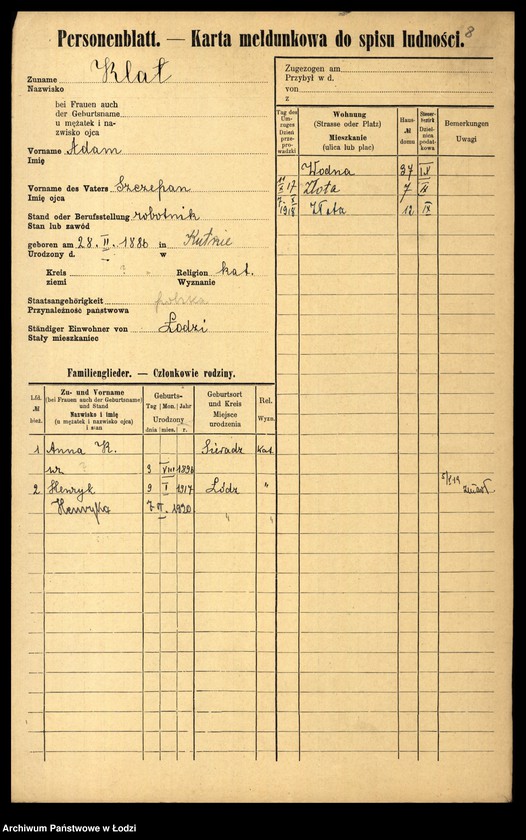 Personenblatt. — Karta meldunkowa do spisu ludności.
8
Zuname Klat
Nazwisko
bei Frauen auch
der Geburtsname
u mężatek i na-
zwisko ojca
Vorname Adam
Imię
Vorname des Vaters Szczepan
Imię ojca
Stand oder Berufsstellung robotnik
Stan lub zawód
geboren am 28. II. 1886 in Kutnie
Urodzony d. w
Kreis ? Religion kat.
ziemi Wyznanie
Staatsangehörigkeit polska
Przynależność państwowa
Ständiger Einwohner von Łodzi
Stały mieszkaniec
Zugezogen am
Przybył w d.
von
z
Tag des Um-zuges Dzień prze-prowadzki
Wohnung (Strasse oder Platz) Mieszkanie (ulica lub plac)
Haus- № domu
Steuer-bezirk Dziel-nica podat-kowa
Bemerkungen Uwagi
Wodna 27
17 Złota 7 IX
1918 Złota 12 IX
Familienglieder. — Członkowie rodziny.
Lfd. № bież.
Zu- und Vorname (bei Frauen auch der Geburtsname) und Stand Nazwisko i imię (u mężatek i nazwisko ojca) i stan
Geburts- Tag Mon. Jahr Urodzony dnia mies. r.
Geburtsort und Kreis Miejsce urodzenia
Rel. Wyzn.
1 Anna K. Sieradz Kat.
3 VIII
2 Henryk 9 I 1917 Łódz "
zmarł
Henryka 7 II. 1920 " "
Archiwum Państwowe w Łodzi